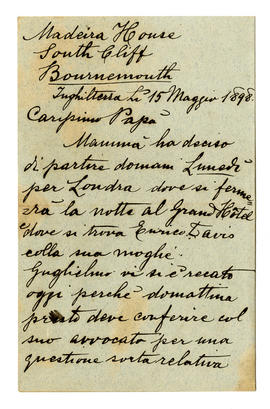 Madeira House
South Cliff
Bournemouth
Inghilterra li 15 Maggio 1898.
Carissimo Papà
Mammà ha deciso
di partire domani Lunedì
per Londra dove si ferme=
rà la notte al Grand Hôtel
dove si trova Enrico Davis
colla sua moglie.
Guglielmo vi si è recato
oggi perchè domattina
presto deve conferire col
suo avvocato per una
questione sorta relativa